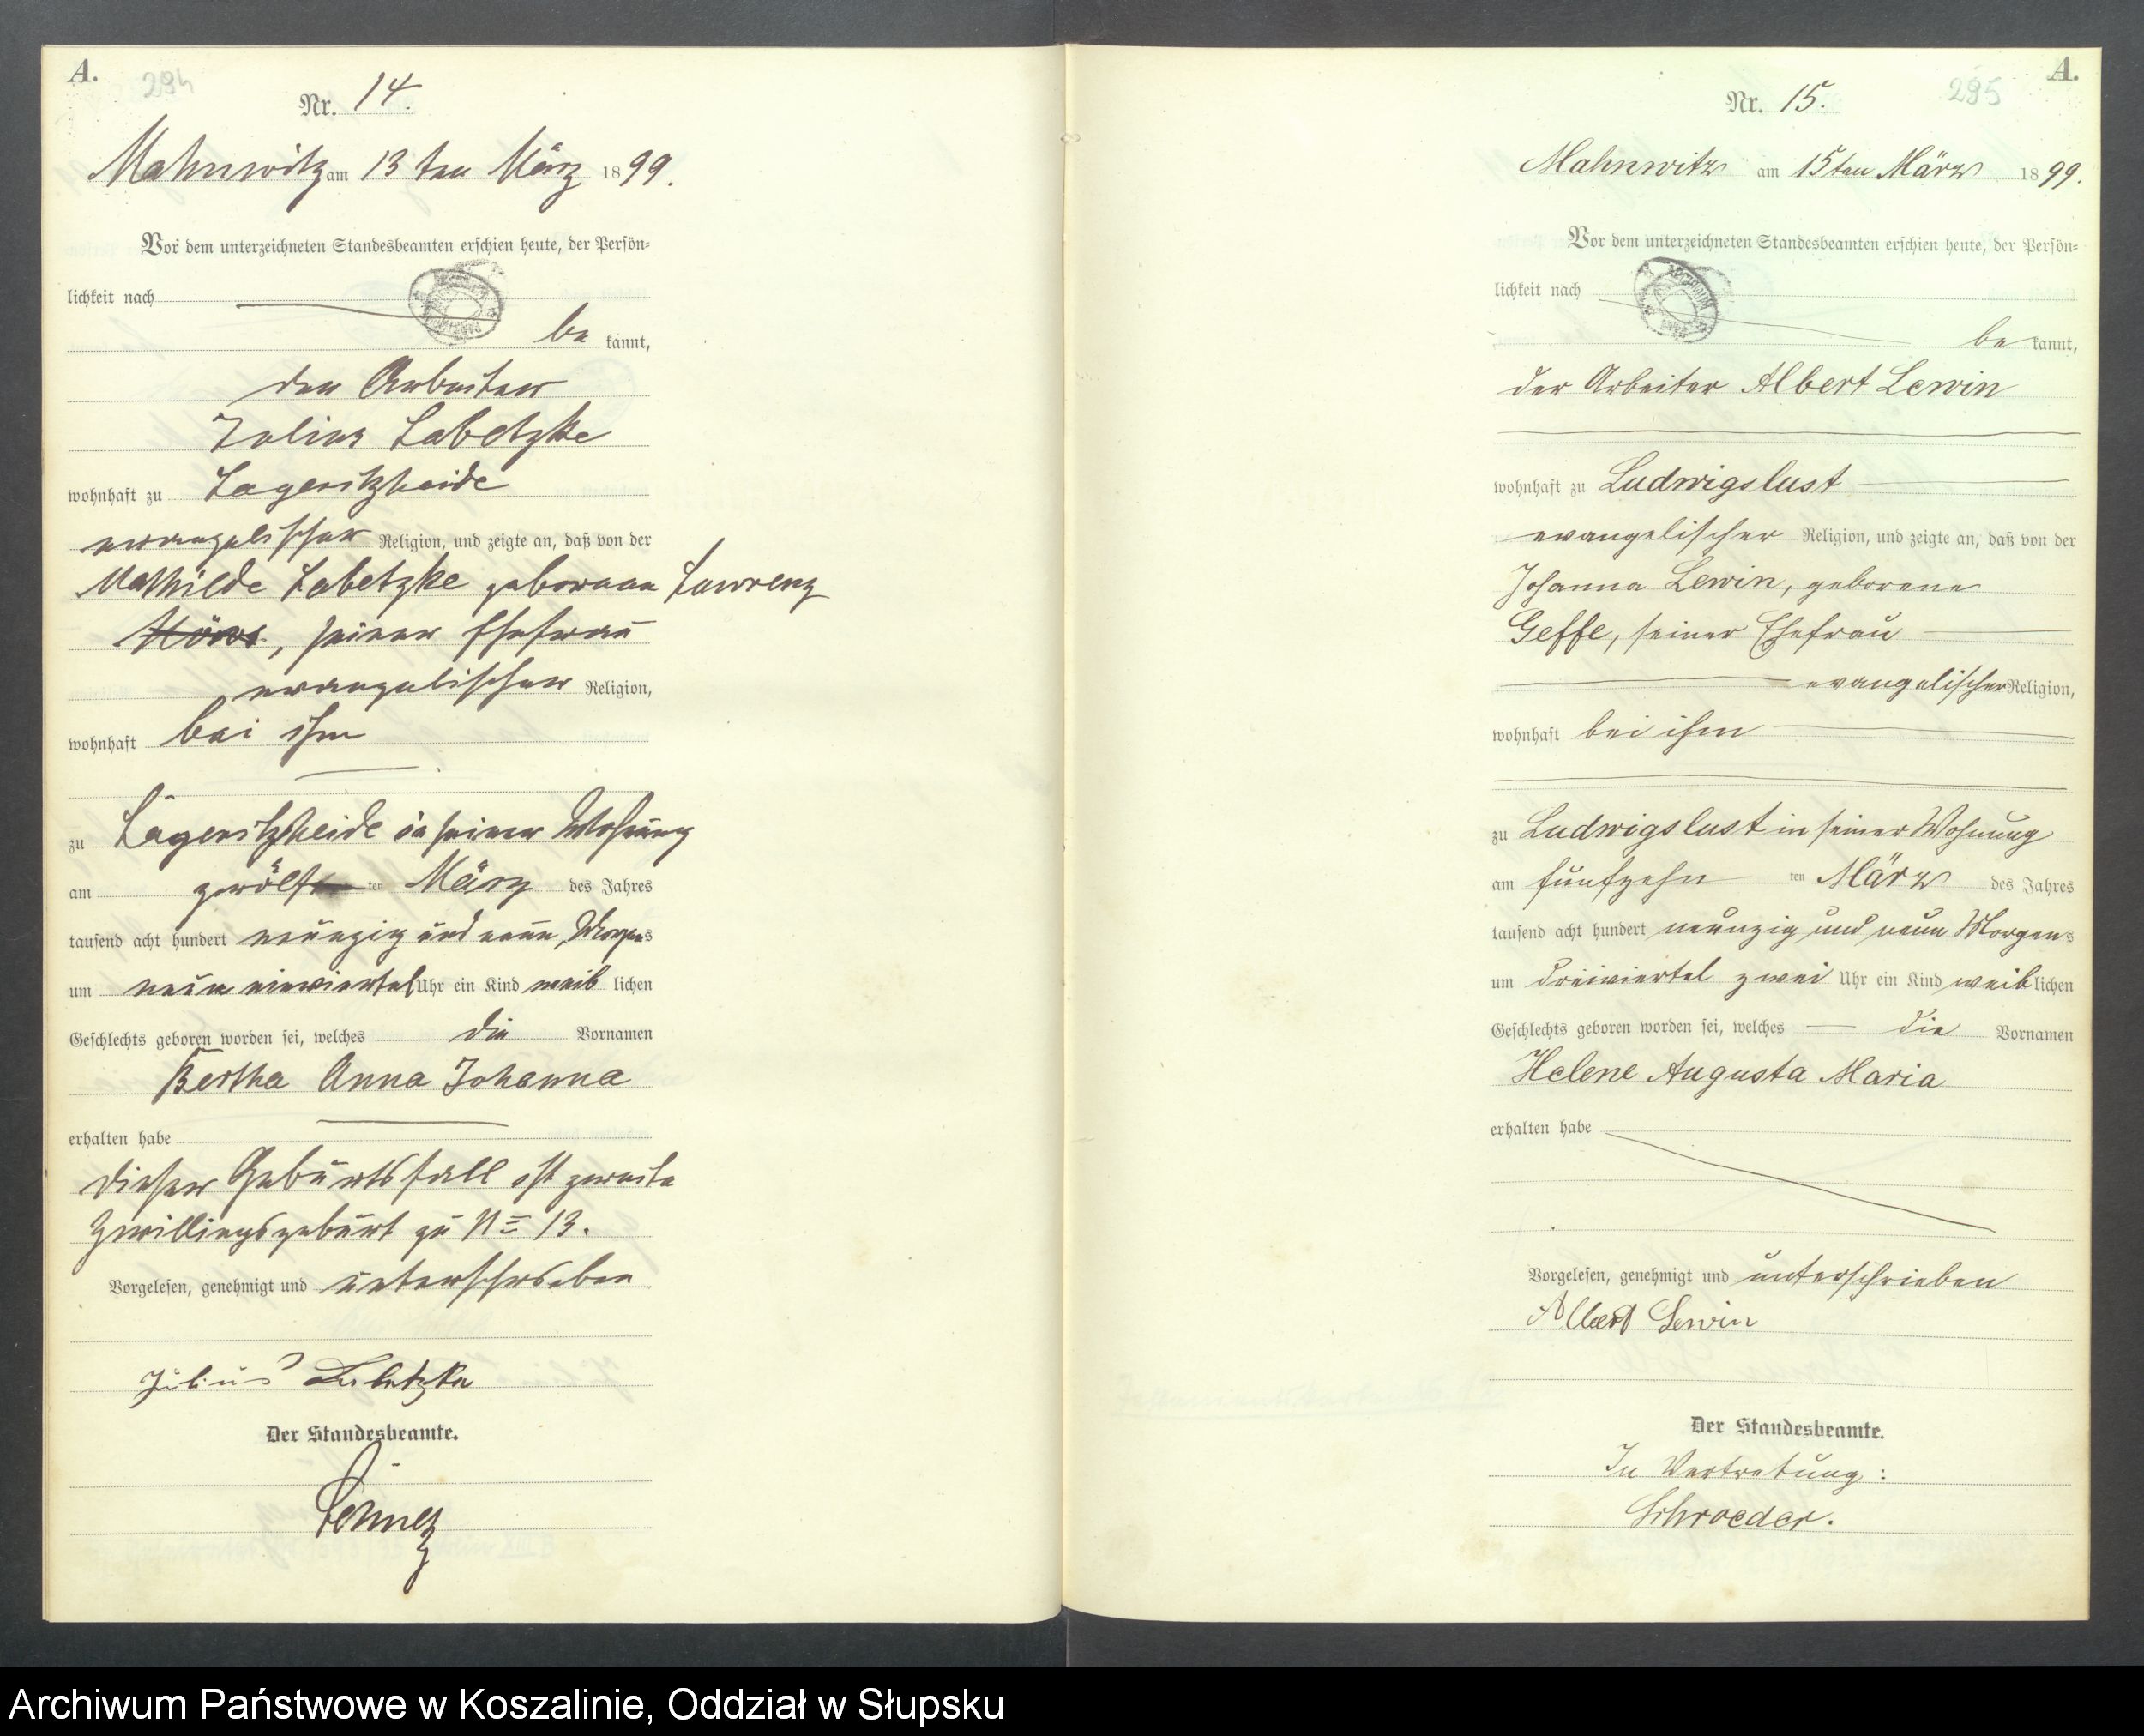 A.
294
Nr. 14.
Mahnwitz am 13 ten März 1899.
Vor dem unterzeichneten Standesbeamten erschien heute, der Persön=
lichkeit nach
be kannt,
der Arbeiter
Julius Labetzke
wohnhaft zu Lageritzheide
evangelischer Religion, und zeigte an, daß von der
Mathilde Labetzke geborene Lawrenz
, seiner Ehefrau
evangelischer Religion,
wohnhaft bei ihm
zu Lageritzheide in seiner Wohnung
am zwölf ten März des Jahres
tausend acht hundert neunzig und neun, Morgens
um neun einviertel Uhr ein Kind weib lichen
Geschlechts geboren worden sei, welches die Vornamen
Bertha Anna Johanna
erhalten habe
Dieser Geburtsfall ist zweite
Zwillingsgeburt zu No 13.
Vorgelesen, genehmigt und unterschrieben
Julius Labetzke
Der Standesbeamte.
A.
295
Nr. 15.
Mahnwitz am 15ten März 1899.
Vor dem unterzeichneten Standesbeamten erschien heute, der Persön=
lichkeit nach
be kannt,
der Arbeiter Albert Lewin
wohnhaft zu Ludwigslust
evangelischer Religion, und zeigte an, daß von der
Johanna Lewin, geborene
Geffe, seiner Ehefrau
evangelischer Religion,
wohnhaft bei ihm
zu Ludwigslust in seiner Wohnung
am fünfzehn ten März des Jahres
tausend acht hundert neunzig und neun Morgens
um dreiviertel zwei Uhr ein Kind weiblichen
Geschlechts geboren worden sei, welches die Vornamen
Helene Augusta Maria
erhalten habe
Vorgelesen, genehmigt und unterschrieben
Albert Lewin
Der Standesbeamte.
In Vertretung:
Schroeder.
Archiwum Państwowe w Koszalinie, Oddział w Słupsku